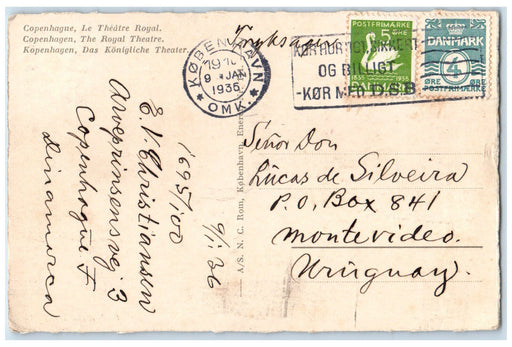 Copenhague, Le Théâtre Royal.
Copenhagen, The Royal Theatre.
Kopenhagen, Das Königliche Theater.
Tryksag
KØBENHAVN
9 JAN
1936
* OMK. *
KØR HURTIGT, SIKKERT
OG BILLIGT
-KØR MED D.S.B.
POSTFRIMÆRKE
5
ØRE
1835
1935
DANMARK
DANMARK
4
ØRE
ØRE
POSTFRIMÆRKE
1695/100
9/1 36
E. V. Christiansen
Arveprinsensvej 3
Copenhague F
Dinamarca
A/S. N. C. Rom, København, Eneret
Señor Don
Lucas de Silveira
P.O. Box 841
Montevideo.
Uruguay.